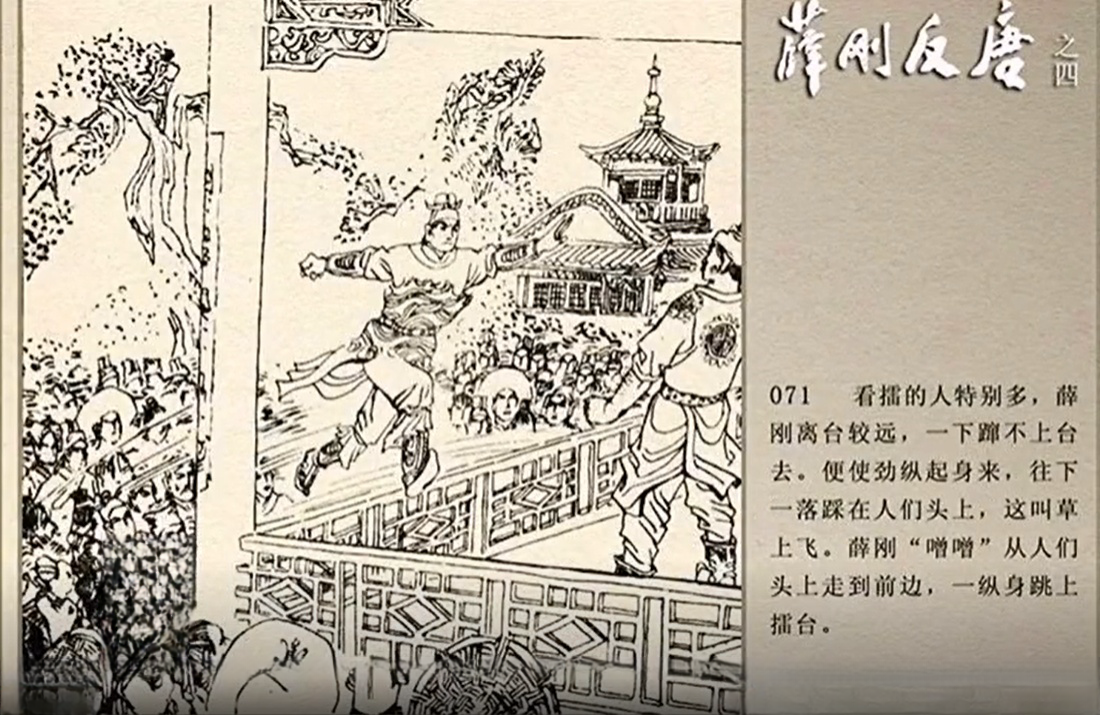 薛刚反唐
之四
071 看擂的人特别多，薛
刚离台较远，一下蹿不上台
去。便使劲纵起身来，往下
一落踩在人们头上，这叫草
上飞。薛刚“噌噌”从人们
头上走到前边，一纵身跳上
擂台。